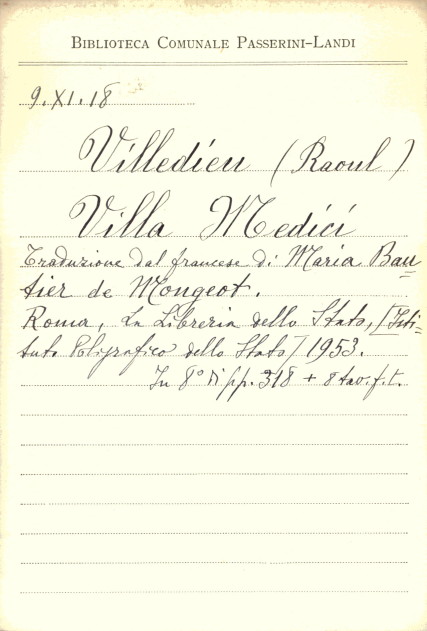 BIBLIOTECA COMUNALE PASSERINI-LANDI
9.XI.18
Villedieu (Raoul)
Villa Medici
Traduzione dal francese di Maria Bau=
tier de Mongeot.
Roma, La Libreria dello Stato, [Isti-
tuto Poligrafico dello Stato] 1953.
In 8° di pp. 318 + 8 tav. f. t.